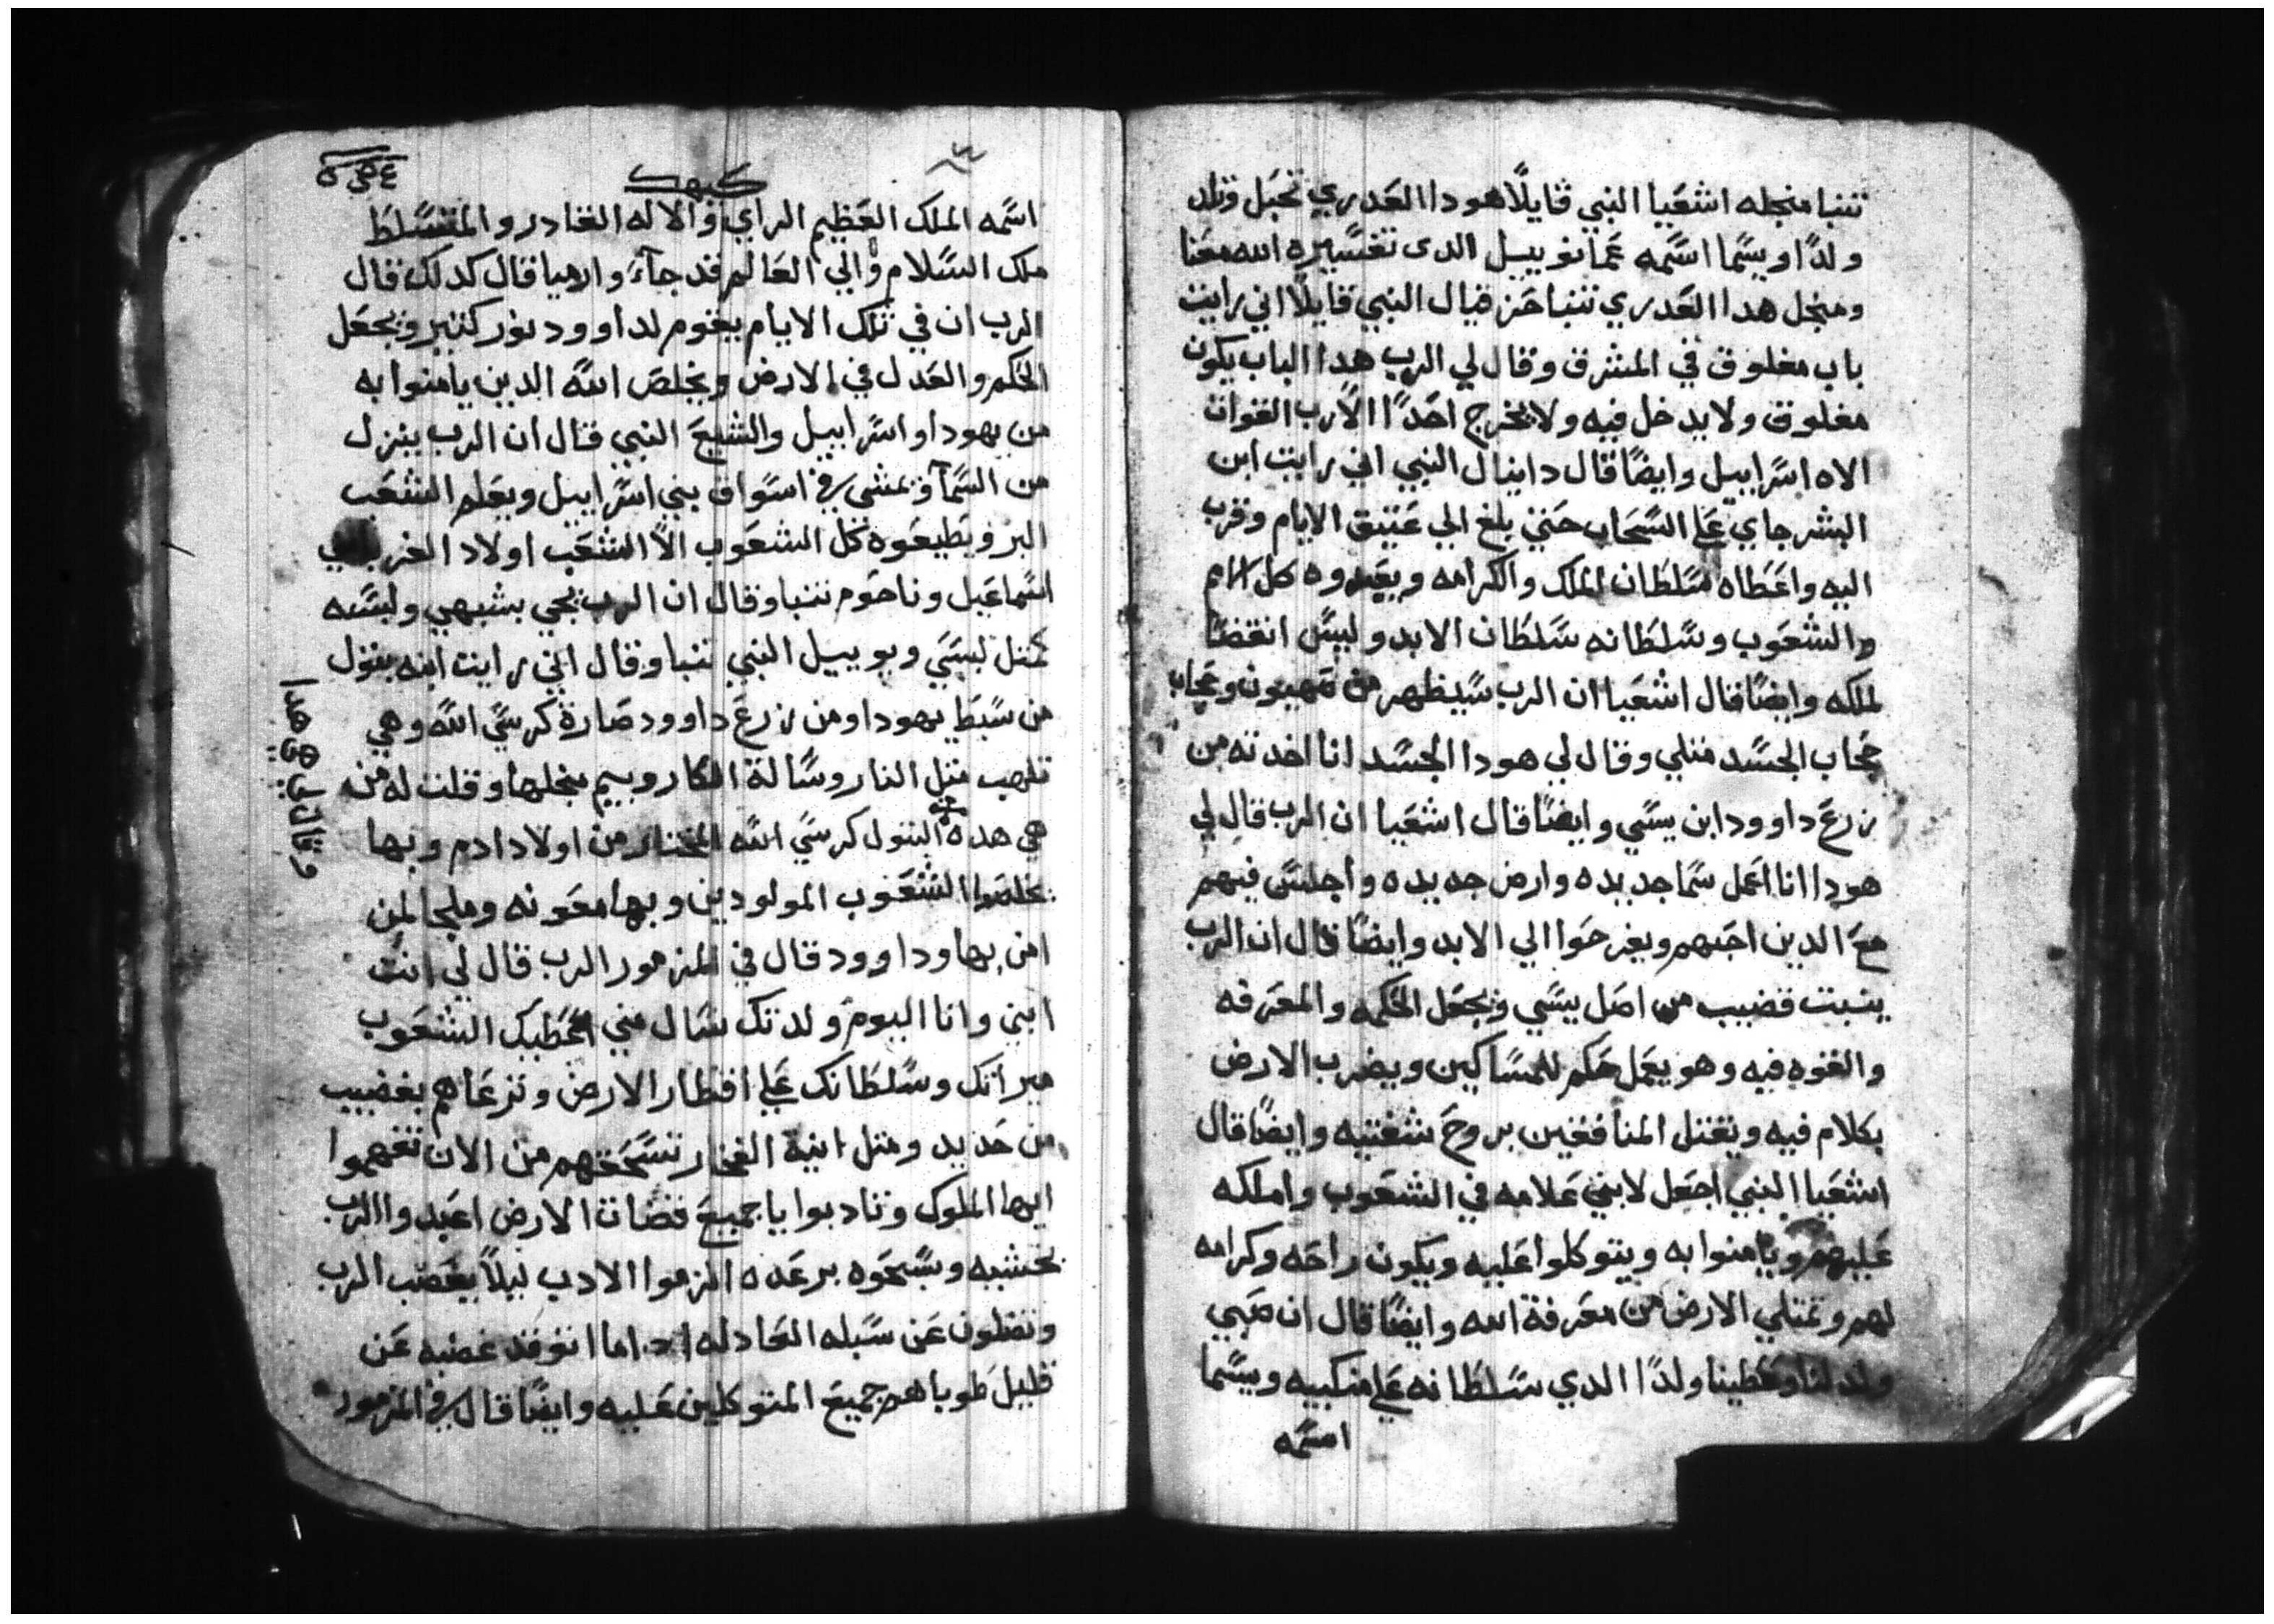 تنبا منجله اشعيا النبي قايلًا هودا العدري تحبل وتلد
ولدًا ويسما اسمه عمانوييل الدى تفسيره الله معنا
ومنجل هدا العدري تنبا حزقيال النبي قايلًا اني رايت
باب مغلوق في المشرق وقال لي الرب هدا الباب يكون
مغلوق ولا يدخل فيه ولا يخرج احدًا الا رب القوات
الاه اسراييل وايضًا قال دانيال النبي اني رايت ابن
البشر جاي علي السحاب حتي بلغ الي عتيق الايام وقرب
اليه واعطاه سلطان الملك والكرامه ويعبدوه كل الامم
والشعوب وسلطانه سلطان الابد وليس انقضا
لملكه وايضًا قال اشعيا ان الرب سيظهر من صهيون وعجاب
عجاب الجسد متلي وقال لي هودا الجسد انا اخدته من
زرع داوود ابن يسي وايضًا قال اشعيا ان الرب قال لي
هودا انا اعمل سما جديده وارض جديده واجلس فيهم
مع الدين احبهم ويفرحوا الي الابد وايضًا قال ان الرب
ينبت قضيب من اصل يسي ويجعل الحكمه والمعرفه
والقوه فيه وهو يعمل حكم للمساكين ويضرب الارض
بكلام فيه ويقتل المنافقين بروح شفتيه وايضًا قال
اشعيا النبي اجعل لابني علامه في الشعوب واملكه
عليهم ويامنوا به ويتوكلوا عليه ويكون راحه وكرامه
لهم وتمتلي الارض من معرفة الله وايضًا قال ان صبي
ولد لنا وعطينا ولدًا الدي سلطانه علي منكبيه ويسما
اسمه
كيهك
اسمه الملك العظيم الراي والاله القادر والمتسلط
ملك السلام والي العالم قد جآء وارميا قال كدلك قال
الرب ان في تلك الايام يقوم لداوود نور كتير ويجعل
الحكم والعدل في الارض ويخلص الله الدين يامنوا به
من يهودا واسراييل والشيع النبي قال ان الرب ينزل
من السمآ ويمشى في اسواق بني اسراييل ويعلم الشعب
البر ويطيعوه كل الشعوب الا الشعب اولاد
اسماعيل وناحوم تنبا وقال ان الرب يجي بشبهي ولبسه
كمتل لبسي ويوييل النبي تنبا وقال اني رايت ابنه بتول
من سبط يهودا ومن زرع داوود صارة كرسي الله وهي
تلهب متل النار وسالة الكاروبيم منجلها وقلت له من
هي هده البتول كرسي الله المختار من اولاد ادم وبها
يخلصوا الشعوب المولودين وبها معونه وملجا لمن
امن بها وداوود قال في المزمور الرب قال لي انت
ابني وانا اليوم ولدتك سال مني اعطيك الشعوب
ميراتك وسلطانك علي اقطار الارض وترعاهم بقضيب
من حديد ومتل انية الفخار تسحقهم من الان تفهموا
ايها الملوك وتادبوا يا جميع قضات الارض اعبدوا الرب
بخشيه وسبحوه برعده الزموا الادب ليلًا يغضب الرب
وتضلون عن سبله العادله ادا ما اتوقد غضبه عن
قليل طوباهم جميع المتوكلين عليه وايضًا قال في المزمور
وقال لي هي هدا